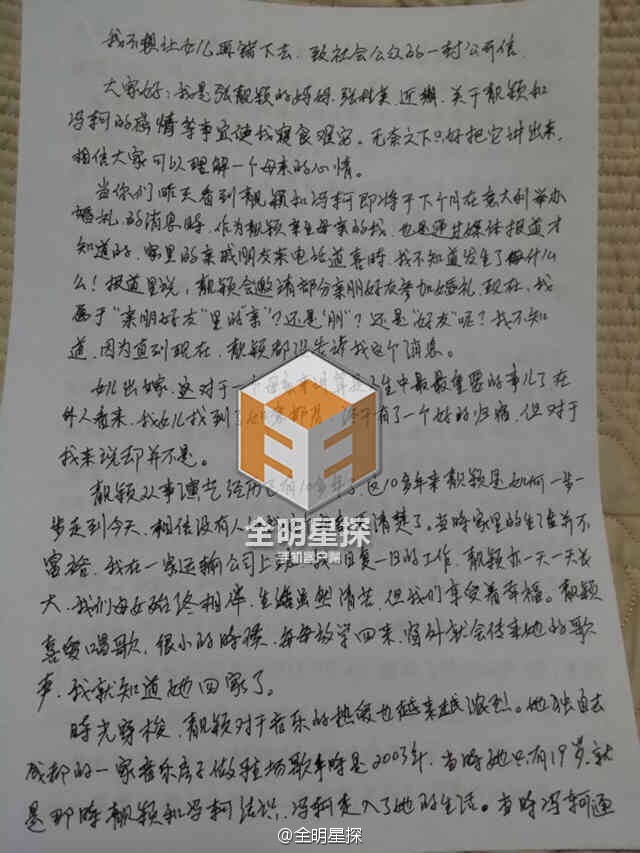 我不想让女儿再错下去、致社会公众的一封公开信
大家好：我是张靓颖的妈妈、张桂英近期、关于靓颖和
冯轲的婚情等事宜使我寝食难安。无奈之下只好把它讲出来，
相信大家可以理解一个母亲的心情。
当你们昨天看到靓颖和冯轲即将于下个月在意大利举办
婚礼的消息时、作为靓颖亲生母亲的我、也是通过媒体报道才
知道的、家里的亲戚朋友来电话道喜时、我不知道发生了什么
么！报道里说，靓颖会邀请部分亲朋好友参加婚礼、现在、我
属于“亲朋好友”里的“亲”？还是“朋”？还是“好友”呢？我不知
道、因为直到现在、靓颖都没告诉我这个消息。
女儿出嫁、这对于一个母亲来讲算是一生中最最重要的事儿了在
外人看来、我女儿找到了 终于有了一个好的归宿、但对于
我来说却并不是。
靓颖从事演艺经历已有10多年。这10多年来靓颖是如何一步一
步走到今天、相信没有人 清楚了。当时家里的生活并不
富裕、我在一家运输公司上班 日复一日的工作、靓颖亦一天一天长
大、我们母女始终相伴、生活虽然清苦、但我们享受着幸福。靓颖
喜爱唱歌、很小的时候、每每放学回来、窗外就会传来她的歌
声、我就知道她回家了。
时光穿梭、靓颖对于音乐的热爱也越来越浓烈。她独自去
成都的一家音乐房子做驻场歌手时是2003年、当时她只有19岁、就
是那时靓颖和冯轲结识、冯轲走入了她的生活。当时冯轲通
全明星探
手机客户端
@全明星探